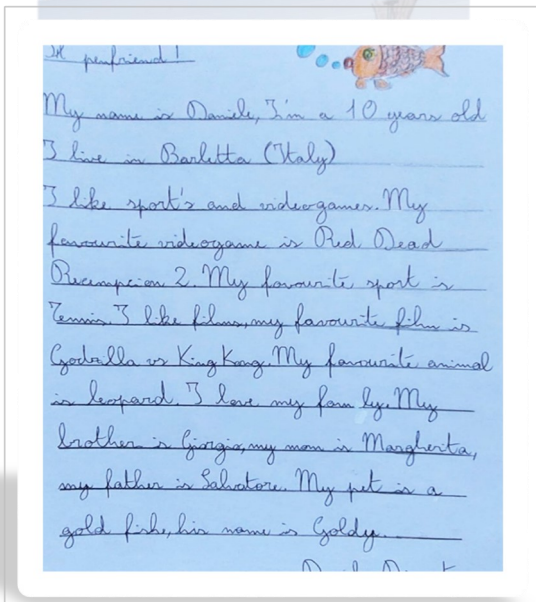 penfriend!
My name is Daniele, I'm a 10 years old
I live in Barletta (Italy)
I like sport's and videogames. My
favourite videogame is Red Dead
Recempcion 2. My favourite sport is
Tennis. I like films, my favourite film is
Godzilla vs King Kong. My favourite animal
is leopard. I love my fam ly. My
brother is Giorgio, my mom is Margherita,
my father is Salvatore. My pet is a
gold fishe, his name is Goldy.